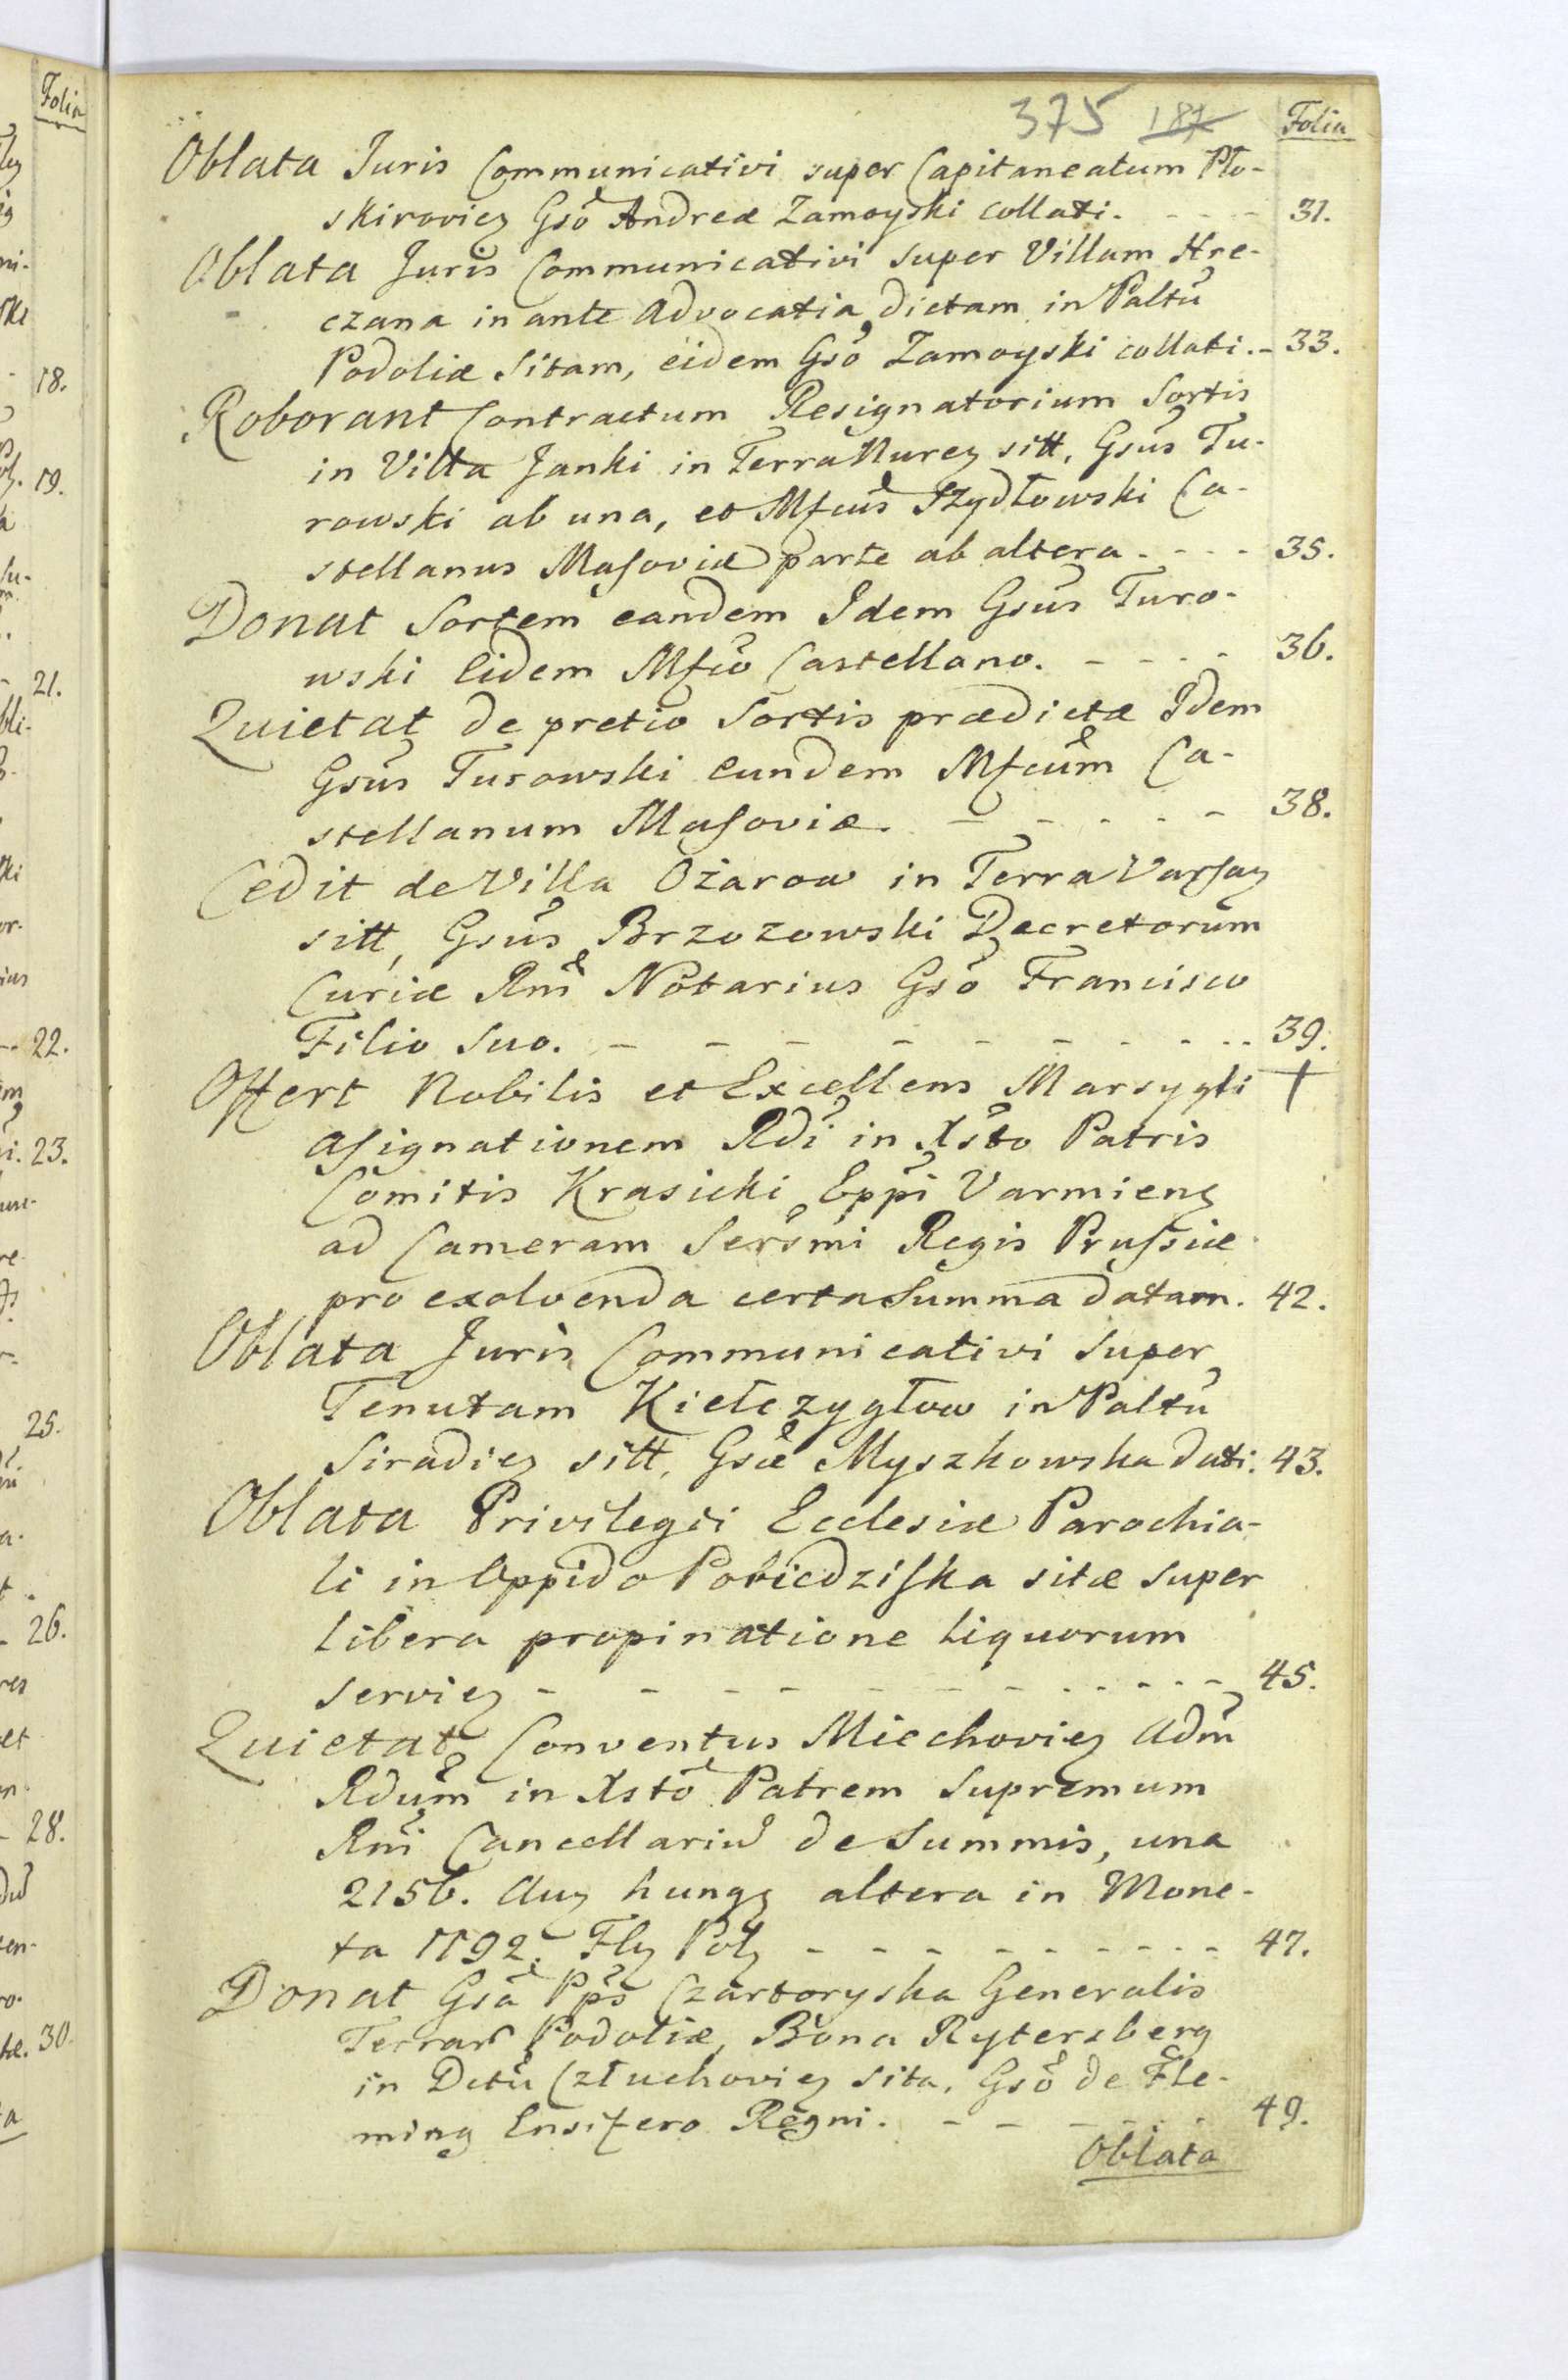 375 187 Folia
Oblata Juris Communicativi super Capitaneatum Pło-
skirovien Gsō Andreæ Zamoyski collati. - - - - 31.
Oblata Juris Communicativi super Villam Hre-
czana in ante Advocatia dictam in Palt̄u
Podoliæ Sitam, eidem Gsō Zamoyski collati. - 33.
Roborant Contractum Resignatorium Sortis
in Villa Janki in Terra Nurez sitt, Gsūs Tu-
rowski ab una, et Mfcūs Szydłowski Ca-
stellanus Masoviæ parte ab altera - - - - 35.
Donat Sortem eandem Idem Gsūs Turo-
wski Eidem Mfcō Castellano. - - - - 36.
Quietat de pretio Sortis prædictæ Idem
Gsūs Turowski eundem Mfcūm Ca-
stellanum Masoviæ. - - - - - 38.
Cedit de Villa Ożarow in Terra Varsaz
sitt, Gsūs Brzozowski Decretorum
Curiæ Rn̄i Notarius Gsō Francisco
Filio Suo. - - - - - - - - - - 39.
Offert Nobilis et Excellens Marsygli +
Asignationem Rd̄i in Xs̄to Patris
Comitis Krasicki Epp̄i Varmienz
ad Cameram Sers̄mi Regis Prussiæ
pro exolvenda certa Summa datam. 42.
Oblata Juris Communicativi super
Tenutam Kiełczygłow in Palt̄u
Siradiez sitt, Gsæ Myszkowska dati. 43.
Oblata Privilegii Ecclesiæ Parochia-
li in Oppido Pobiedziska sitæ super
libera propinatione liquorum
serviez - - - - - - - - - - - 45.
Quietat Conventus Miechoviez Adm̄
Rdūm in Xstō Patrem Supremum
Rn̄i Cancellariū de Summis, una
2156. Auz hungz altera in Mone-
ta 1192. Flz Polz - - - - - - - - - 47.
Donat Gsā Pp̄s Czartoryska Generalis
Terrar Podoliæ, Bona Rytersberg
in Dctū Człuchoviez sita, Gsō de Fle-
ming Ensifero Regni. - - - - - - 49.
Oblata
Folia
18.
19.
21.
22.
23.
25.
26.
28.
30.